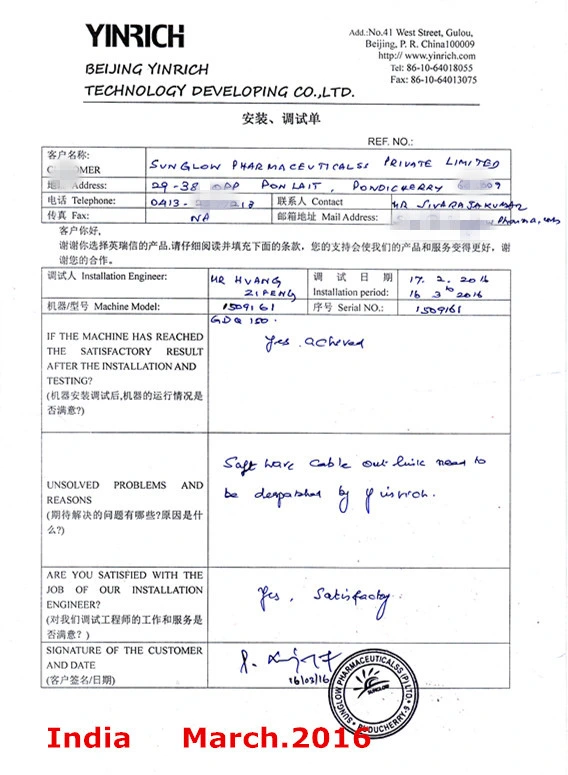 YINRICH
BEIJING YINRICH
TECHNOLOGY DEVELOPING CO.,LTD.
Add.:No.41 West Street, Gulou,
Beijing, P. R. China100009
http:// www.yinrich.com
Tel: 86-10-64018055
Fax: 86-10-64013075
安装、调试单
REF. NO.:
客户名称: SUNGLOW PHARMACEUTICALSS PRIVATE LIMITED
Address: 29-38 ODP PONLAIT, PONDICHERRY
电话 Telephone: 0413- 联系人 Contact MR SIVARAJAKUMAR
传真 Fax: NA 邮箱地址 Mail Address:
客户你好,
谢谢你选择英瑞信的产品,请仔细阅读并填充下面的条款，您的支持会使我们的产品和服务变得更好，谢
谢您的合作。
调试人 Installation Engineer: MR HUANG ZIFENG 调 试 日 期 Installation period: 17. 2. 2016
16 3 2016
机器/型号 Machine Model: 1509161 序号 Serial NO.: 1509161
GDQ 150.
IF THE MACHINE HAS REACHED
THE SATISFACTORY RESULT
AFTER THE INSTALLATION AND
TESTING?
(机器安装调试后,机器的运行情况是
否满意?)
Yes. acheved
UNSOLVED PROBLEMS AND
REASONS
(期待解决的问题有哪些?原因是什
么?)
Soft ware cable out link need to
be despatched by Yinrich.
ARE YOU SATISFIED WITH THE
JOB OF OUR INSTALLATION
ENGINEER?
(对我们调试工程师的工作和服务是
否满意？)
Yes, Satisfactory
SIGNATURE OF THE CUSTOMER
AND DATE
(客户签名/日期)
16/03/16
SUNGLOW PHARMACEUTICALSS (P) LTD.
SUNGLOW
PUDUCHERRY-9
India March.2016